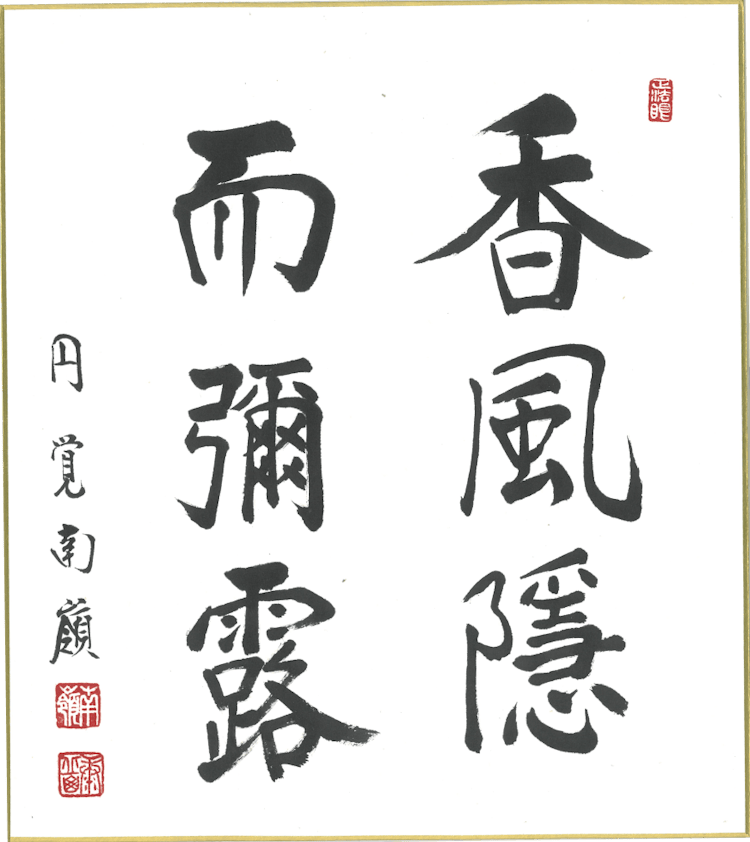 正法眼
香風隠
而彌露
円覚南嶺
南嶺